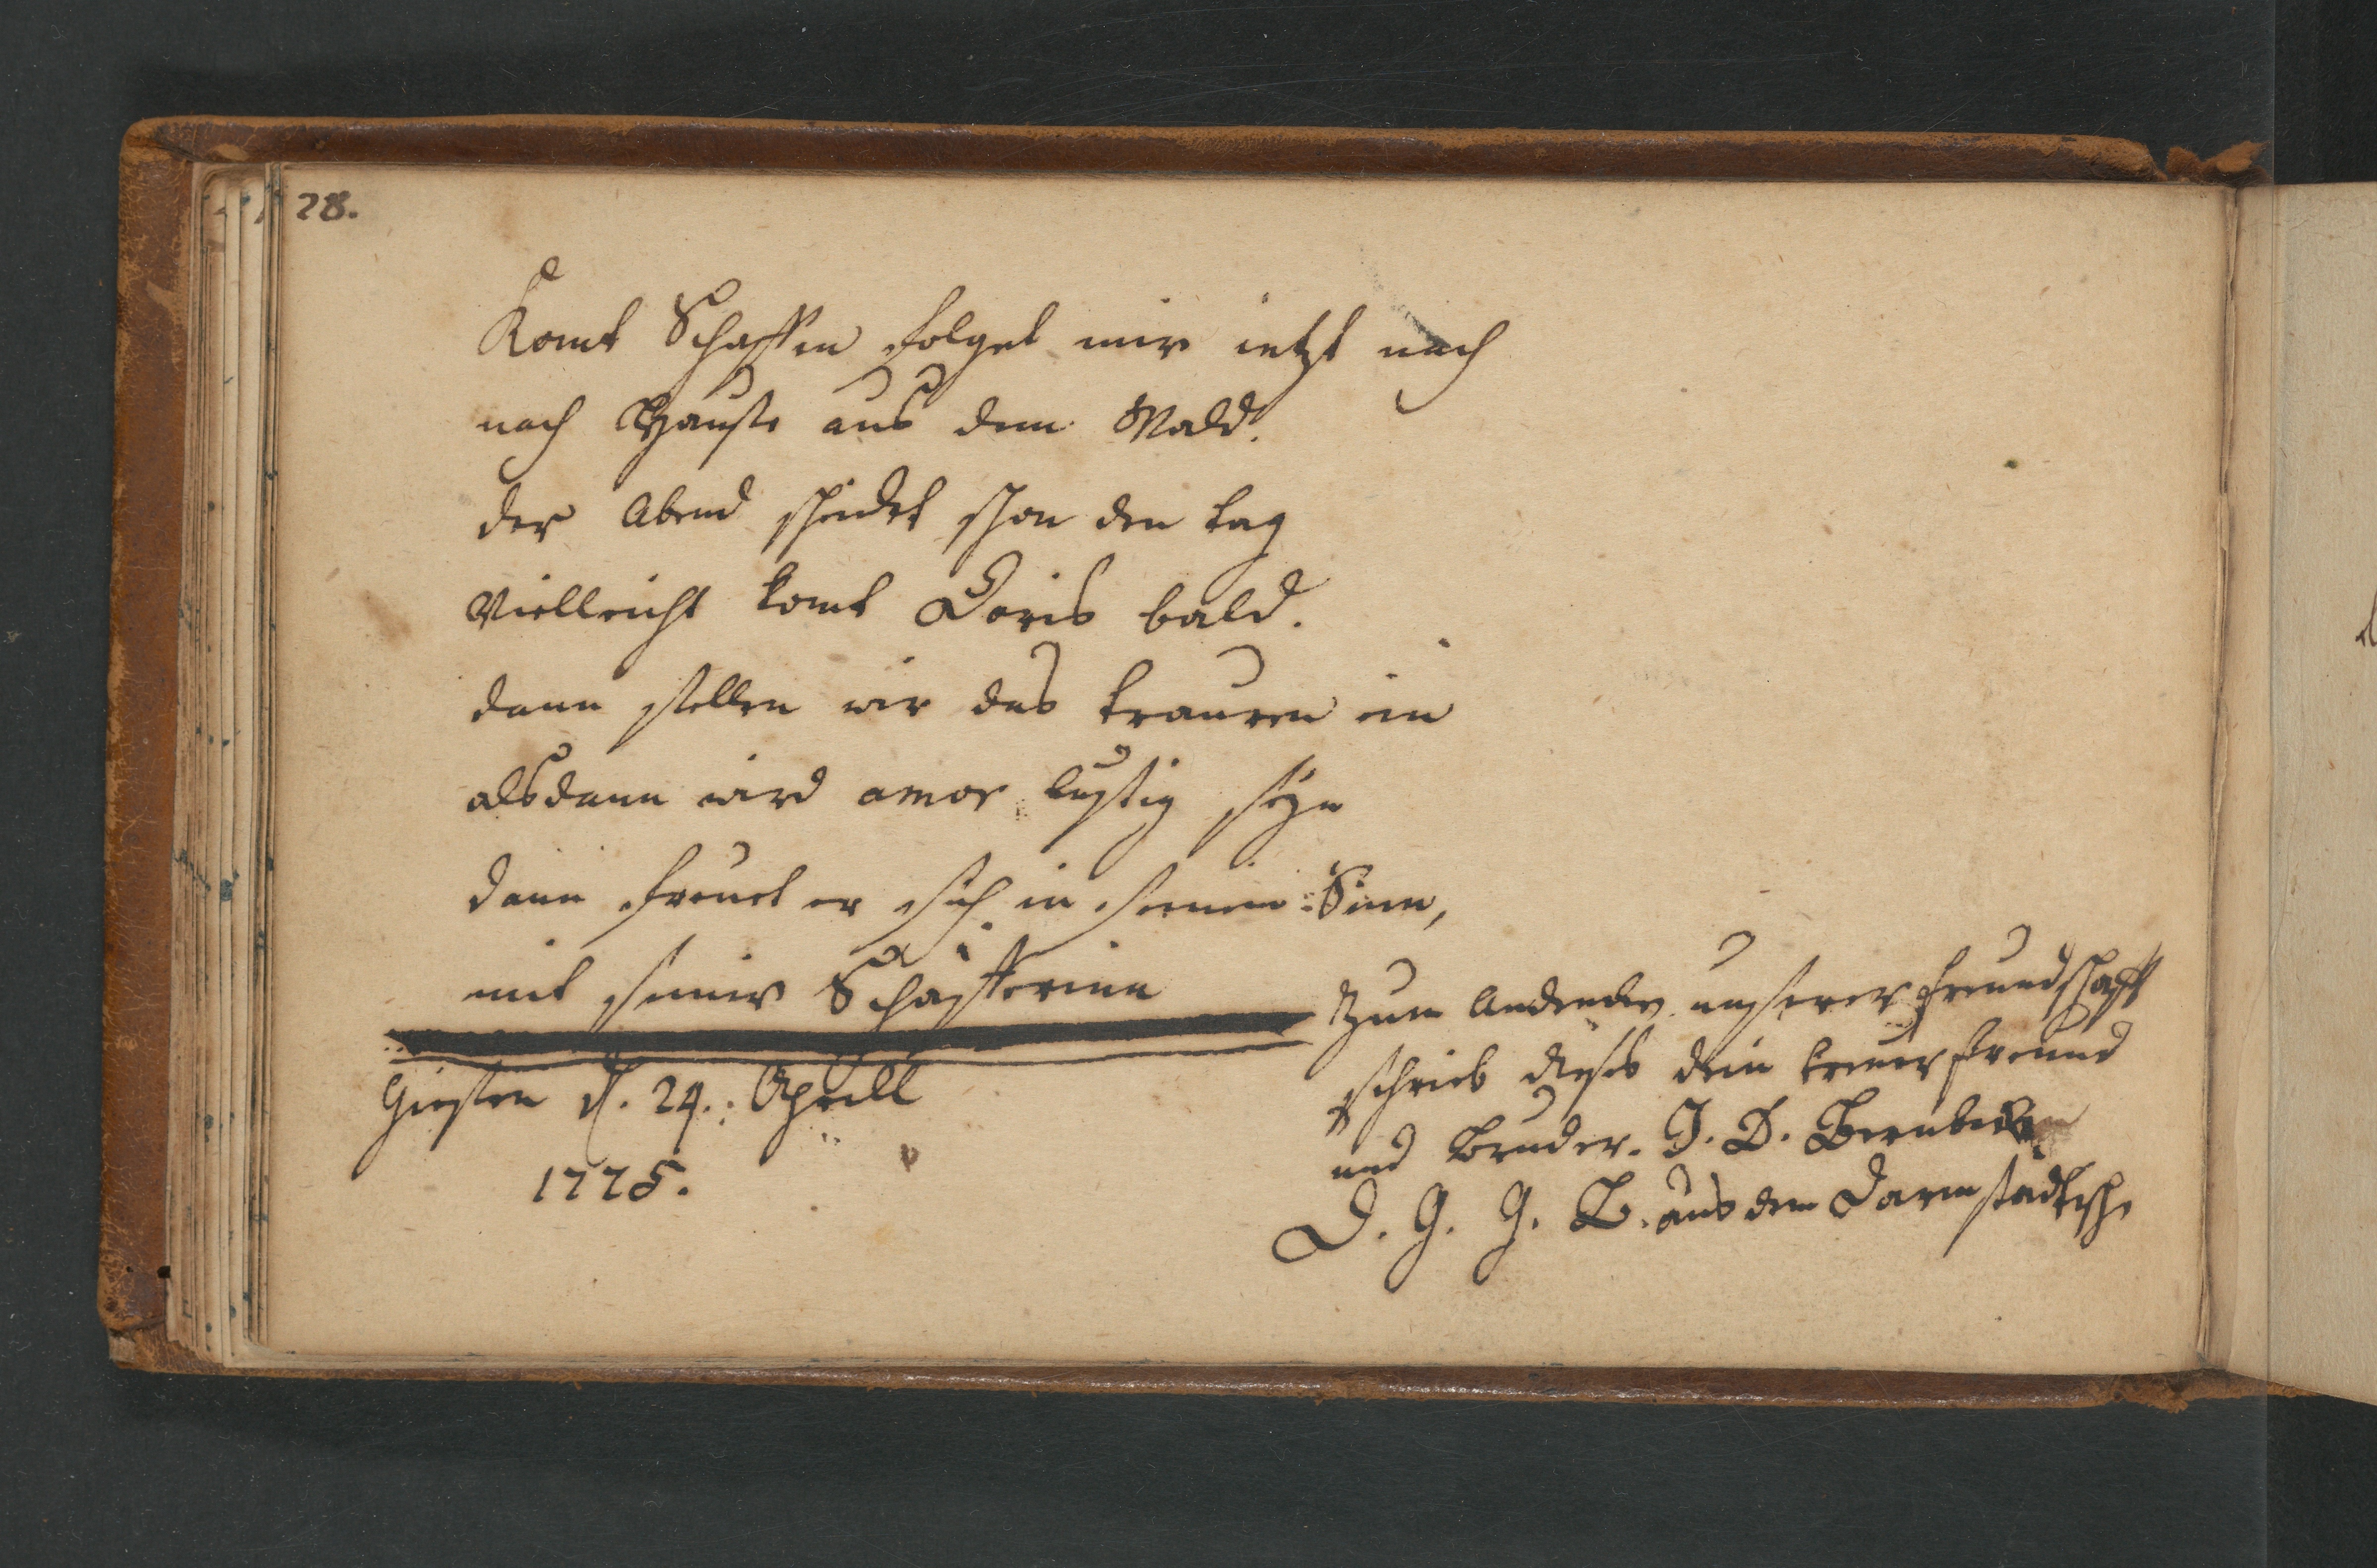 28.
Komt Schaffen folget mir ietzt nach
nach Hauße aus dem Wald.
der Abend scheidet schon den tag
Vielleicht komt Doris bald.
dann stellen wir das trauren ein
alsdann wird amor lustig seyn
dann freuet er sich in seinem Sinn,
mit seiner Schäfferinn
Giesen d. 24. Aprill
1775.
Zum Andencken unserer Freundschafft
schrieb dieses dein treuer freund
und Bruder. J. D.
D. G. G. B. aus dem Darmstädtische